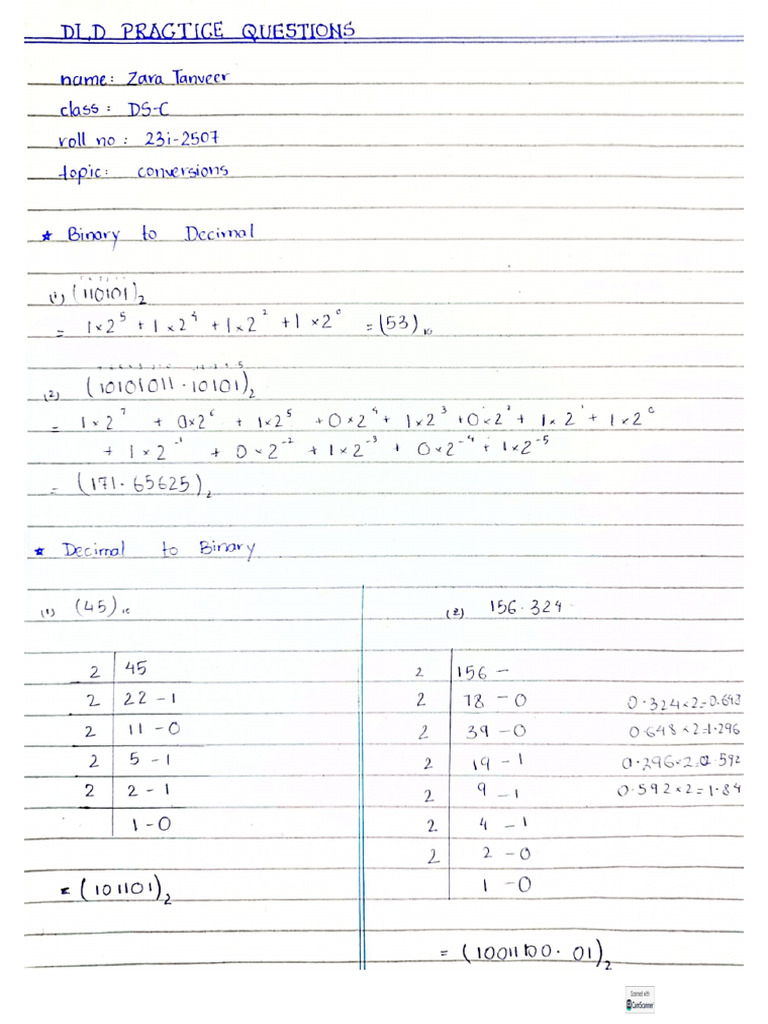 DLD PRACTICE QUESTIONS
name: Zara Tanveer
class: DS-C
roll no: 23i-2507
topic: conversions
* Binary to Decimal
(1) (110101)₂
= 1×2⁵ + 1×2⁴ + 1×2² + 1×2⁰ = (53)₁₀
(2) (10101011.10101)₂
= 1×2⁷ + 0×2⁶ + 1×2⁵ + 0×2⁴ + 1×2³ + 0×2² + 1×2¹ + 1×2⁰
+ 1×2⁻¹ + 0×2⁻² + 1×2⁻³ + 0×2⁻⁴ + 1×2⁻⁵
= (171.65625)₂
* Decimal to Binary
(1) (45)₁₀
2 45
2 22 - 1
2 11 - 0
2 5 - 1
2 2 - 1
1 - 0
= (101101)₂
(2) 156.324
2 156 -
2 78 - 0 0.324×2=0.648
2 39 - 0 0.648×2=1.296
2 19 - 1 0.296×2=0.592
2 9 - 1 0.592×2=1.84
2 4 - 1
2 2 - 0
1 - 0
= (10011100.01)₂
Scanned with
CamScanner